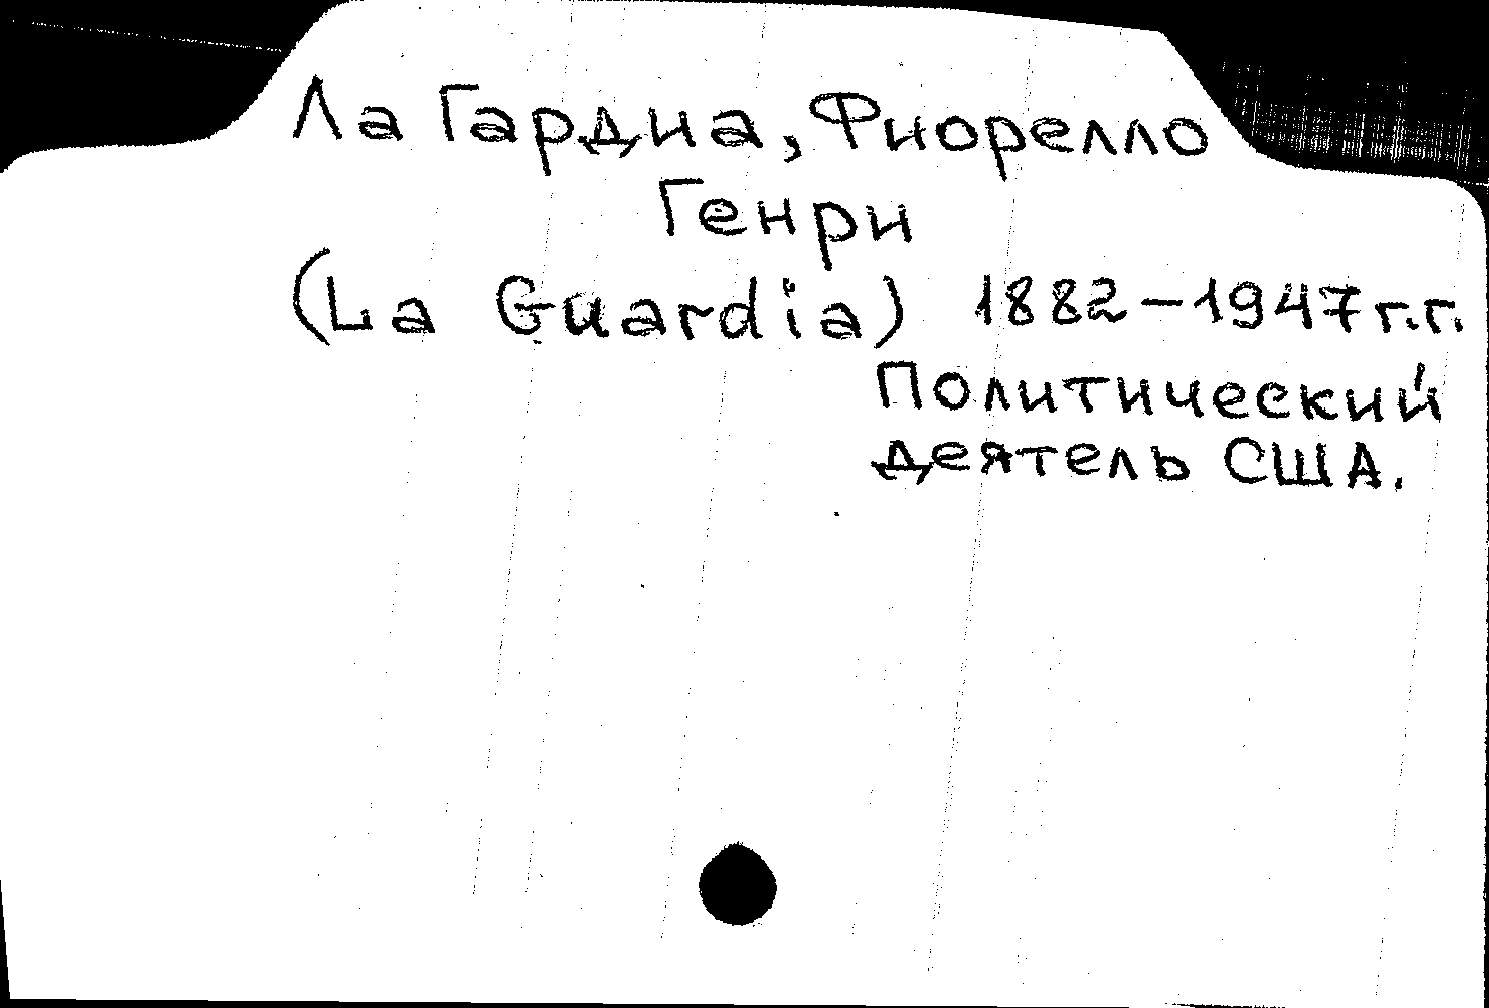 Ла Гардиа, Фиорелло
Генри
(La Guardia) 1882-1947 г.г.
Политический
деятель США.